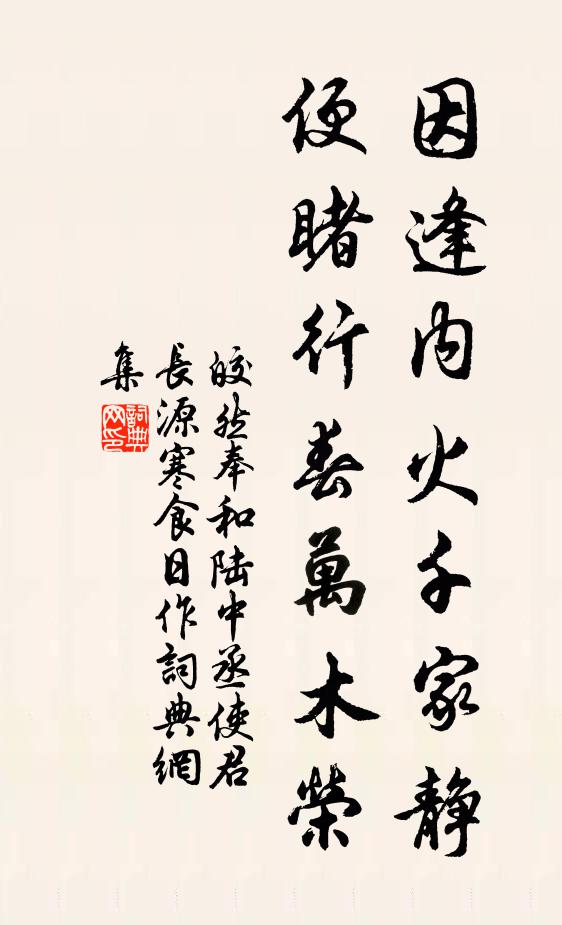 因逢內火千家静
便睹行春萬木榮
皎然奉和陆中丞使君
長源寒食日作詞典網
集
詞典
网印